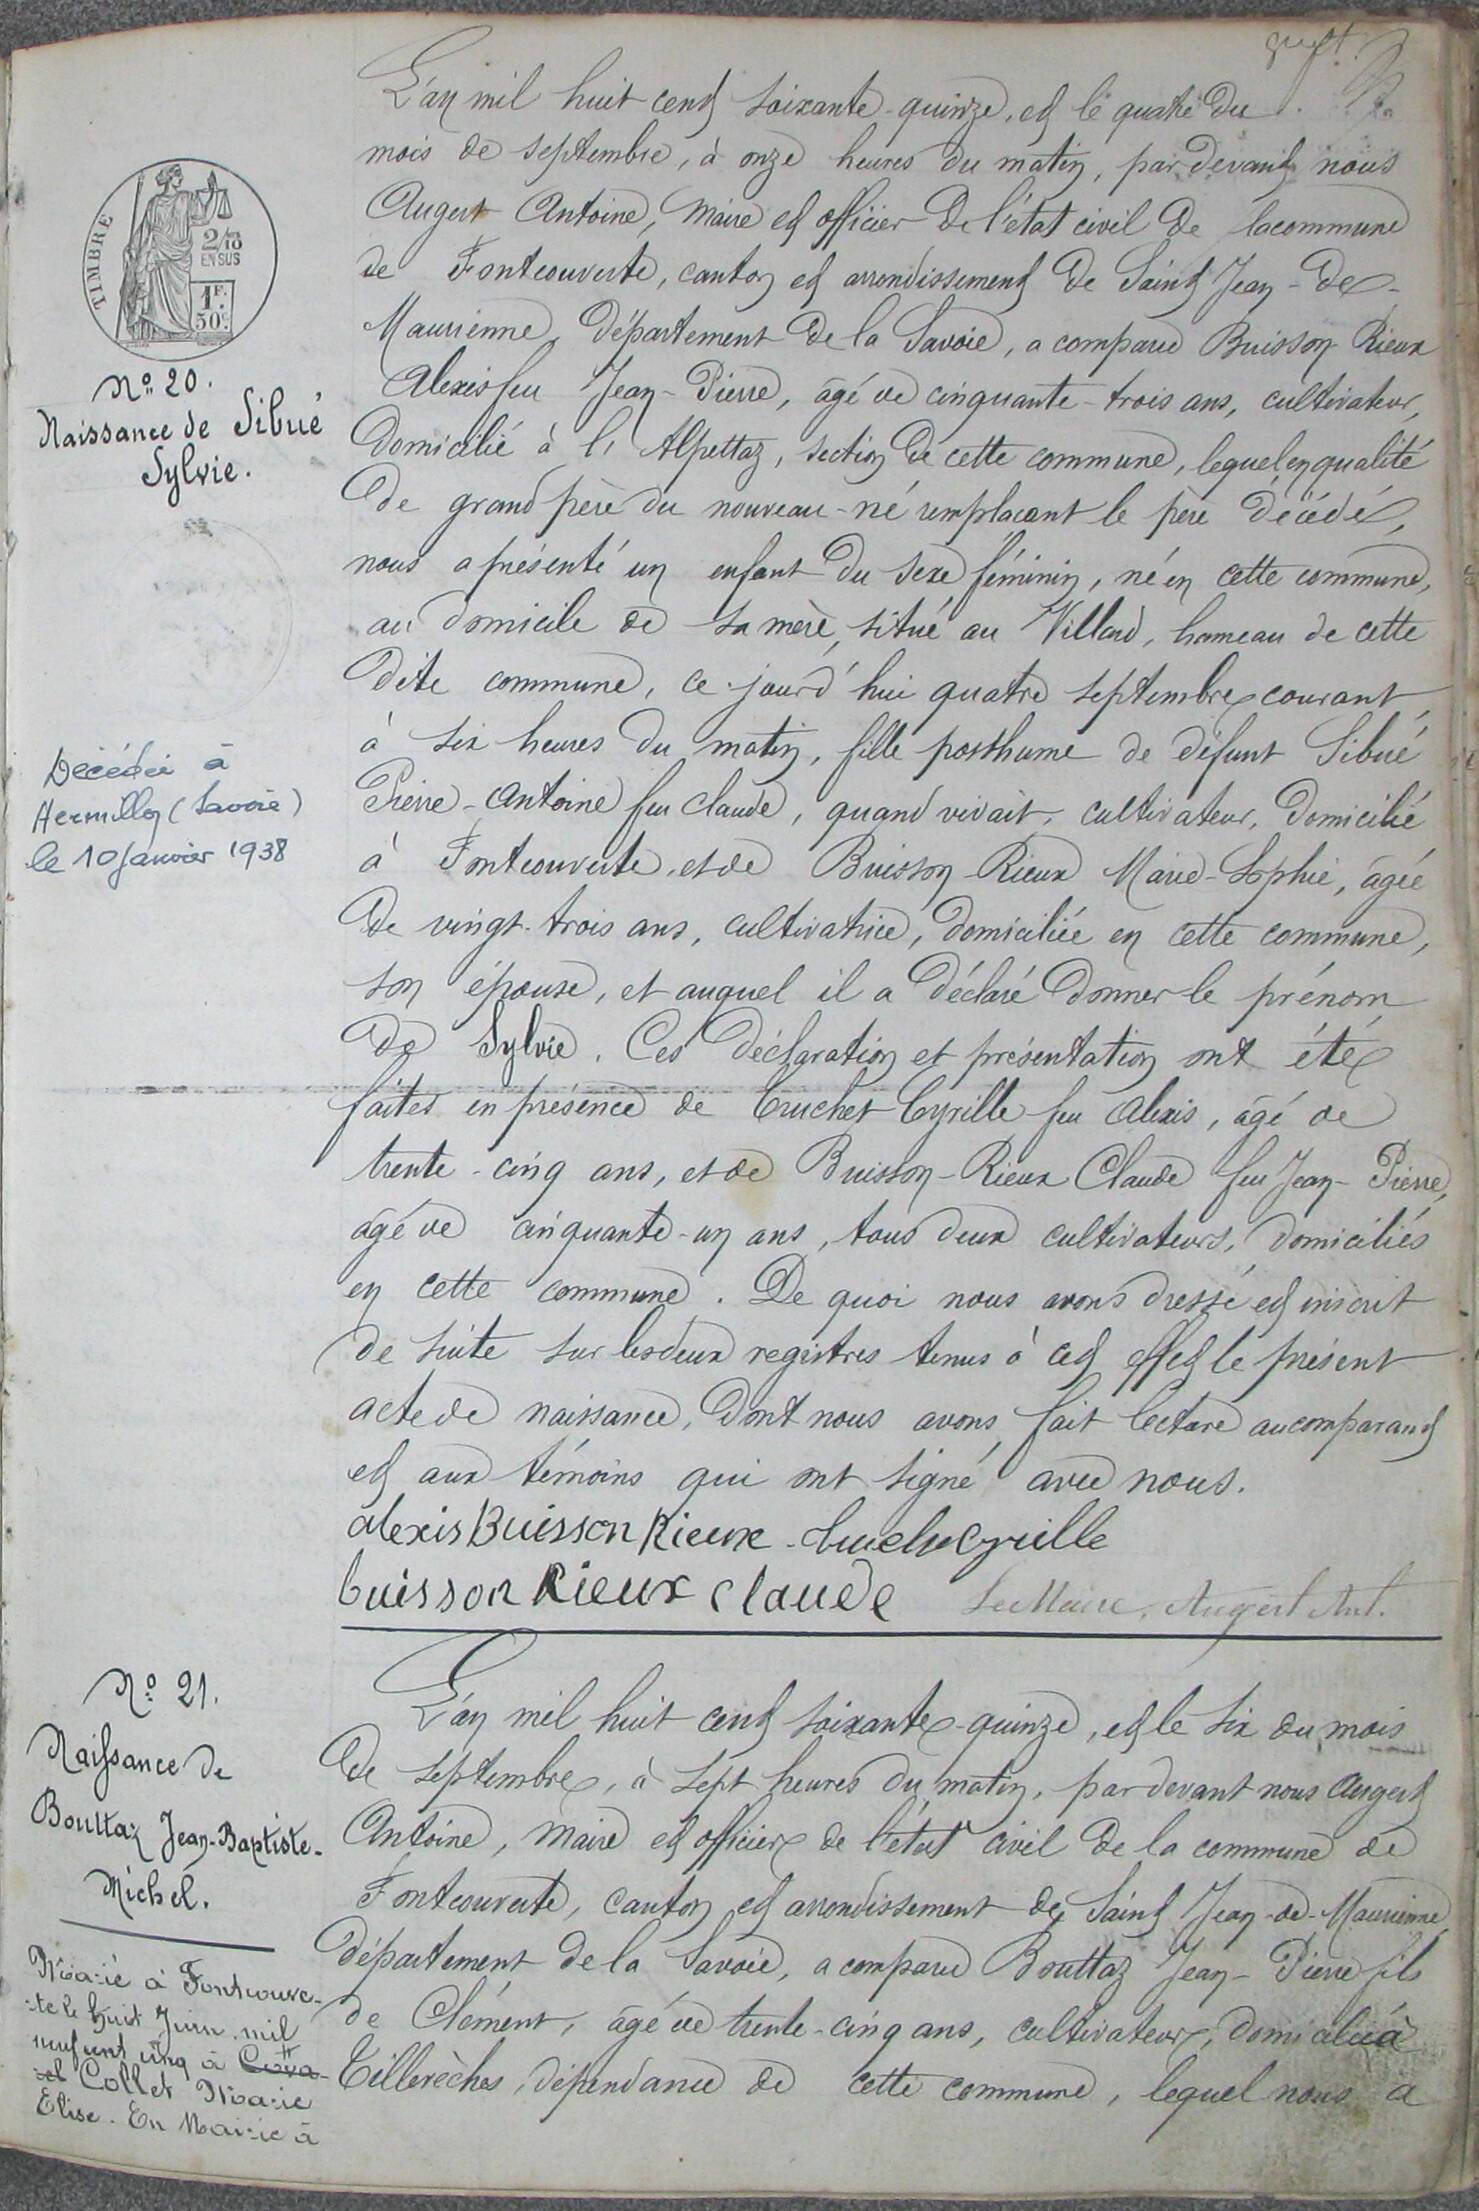 TIMBRE
2/10
EN SUS
1F.
50c.
No 20.
Naissance de Sibué
Sylvie.
Décédée à
Hermillon (Savoie)
le 10 Janvier 1938
L'an mil huit cent soixante-quinze, et le quatre du
mois de septembre, à onze heures du matin, par devant nous
Augert Antoine, Maire et officier de l'état civil de la commune
de Fontcouverte, canton et arrondissement de Saint Jean-de-
Maurienne, département de la Savoie, a comparu Buisson Rieux
Alexis feu Jean-Pierre, âgé de cinquante-trois ans, cultivateur,
domicilié à l'Alpettaz, section de cette commune, lequel en qualité
de grand père du nouveau-né remplaçant le père décédé,
nous a présenté un enfant du sexe féminin, né en cette commune,
au domicile de sa mère, situé au Villard, hameau de cette
dite commune, ce jourd'hui quatre septembre courant,
à six heures du matin, fille posthume de défunt Sibué
Pierre-Antoine feu Claude, quand vivait, cultivateur, domicilié
à Fontcouverte, et de Buisson-Rieux Marie-Sophie, âgée
de vingt-trois ans, cultivatrice, domiciliée en cette commune,
son épouse, et auquel il a déclaré donner le prénom
de Sylvie. Ces déclaration et présentation ont été
faites en présence de Truchet Cyrille feu Alexis, âgé de
trente-cinq ans, et de Buisson-Rieux Claude feu Jean-Pierre,
âgé de cinquante-un ans, tous deux cultivateurs, domiciliés
en cette commune. De quoi nous avons dressé et inscrit
de suite sur les deux registres tenus à cet effet le présent
acte de naissance, dont nous avons fait lecture au comparant
et aux témoins qui ont signé avec nous.
Alexis Buisson Rieux - Truchet Cyrille
buisson Rieux Claude Le Maire, Augert Ant.
No 21.
Naissance de
Bouttaz Jean-Baptiste-
Michel.
Marié à Fontcouver-
-te le huit Juin mil
neuf cent cinq à Cova-
-el Collet Marie
Elise. En Mairie à
L'an mil huit cent soixante-quinze, et le six du mois
de septembre, à sept heures du matin, par devant nous Augert
Antoine, Maire et officier de l'état civil de la commune de
Fontcouverte, canton et arrondissement de Saint Jean-de-Maurienne,
département de la Savoie, a comparu Bouttaz Jean-Pierre fils
de Clément, âgé de trente-cinq ans, cultivateur, domicilié à
Tillerèches, dépendance de cette commune, lequel nous a